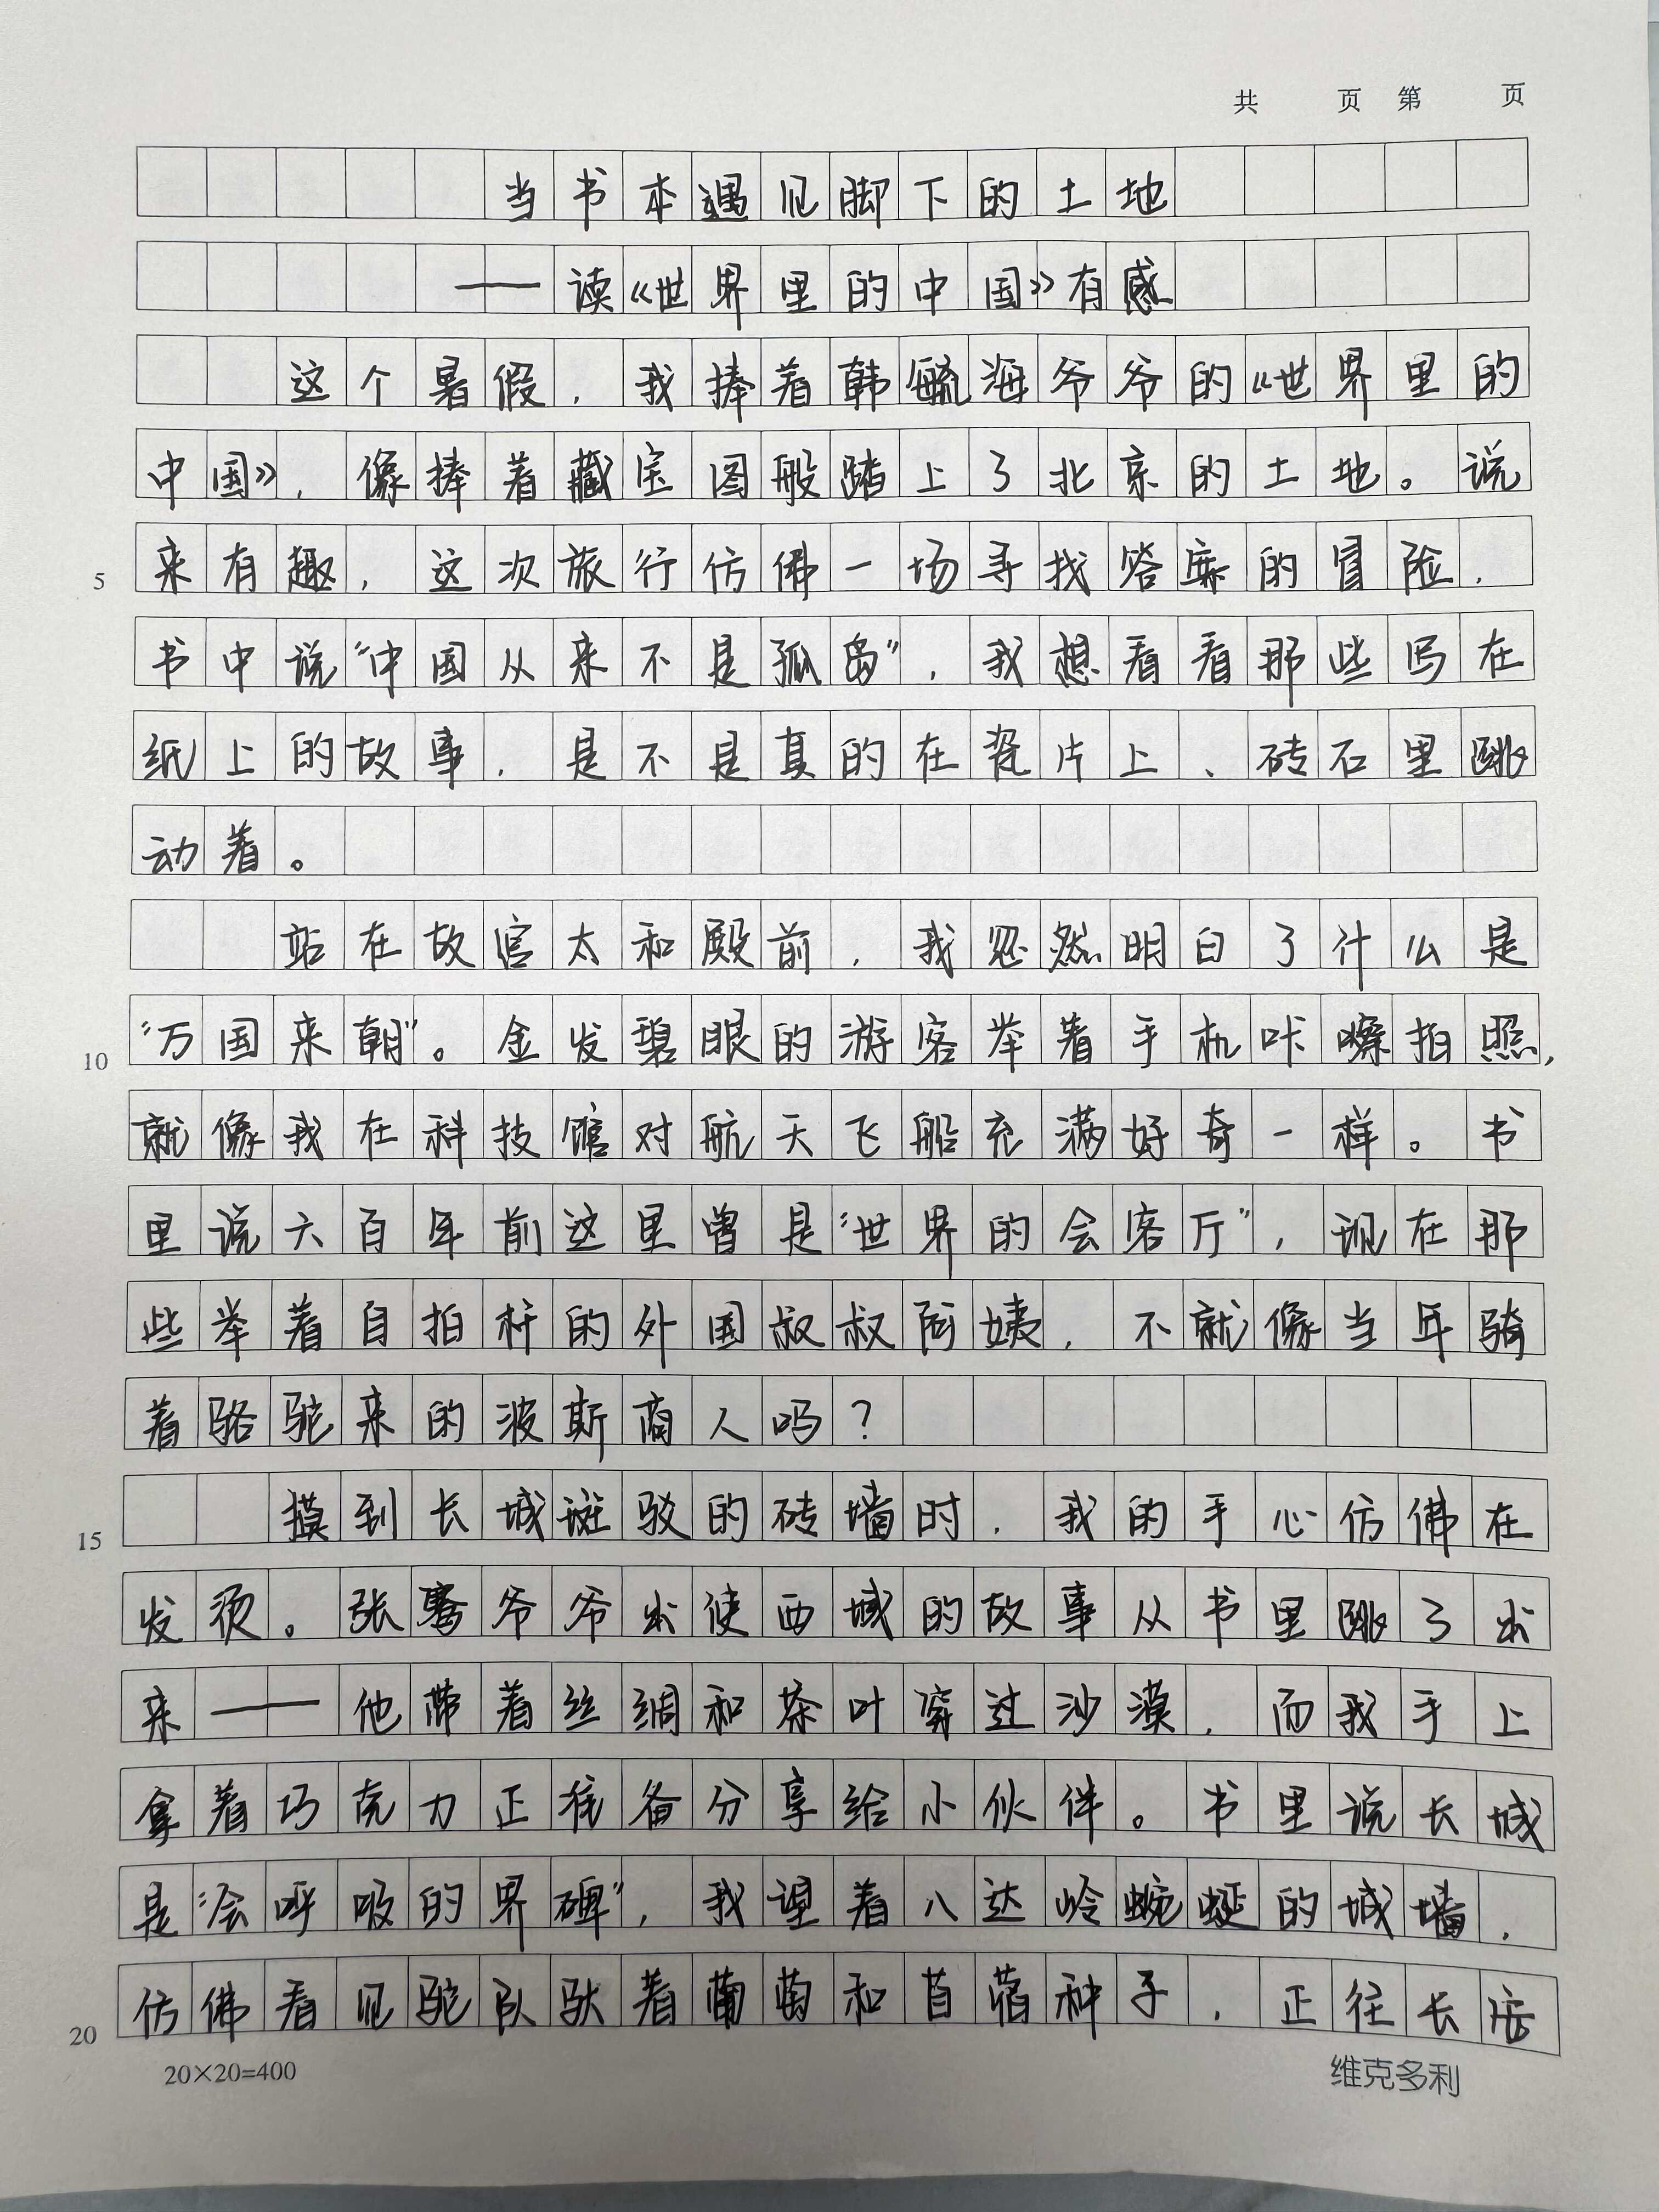 共 页 第 页
当书本遇见脚下的土地
——读《世界里的中国》有感
这个暑假，我捧着韩毓海爷爷的《世界里的
中国》，像捧着藏宝图般踏上了北京的土地。说
5 来有趣，这次旅行仿佛一场寻找答案的冒险，
书中说“中国从来不是孤岛”，我想看看那些写在
纸上的故事，是不是真的在瓷片上、砖石里跳
动着。
站在故宫太和殿前，我忽然明白了什么是
10 “万国来朝”。金发碧眼的游客举着手机咔嚓拍照，
就像我在科技馆对航天飞船充满好奇一样。书
里说六百年前这里曾是“世界的会客厅”，现在那
些举着自拍杆的外国叔叔阿姨，不就像当年骑
着骆驼来的波斯商人吗？
15 摸到长城斑驳的砖墙时，我的手心仿佛在
发烫。张骞爷爷出使西域的故事从书里跳了出
来——他带着丝绸和茶叶穿过沙漠，而我手上
拿着巧克力正准备分享给小伙伴。书里说长城
是“会呼吸的界碑”，我望着八达岭蜿蜒的城墙，
20 仿佛看见驼队驮着葡萄和苜蓿种子，正往长安
20×20=400 维克多利